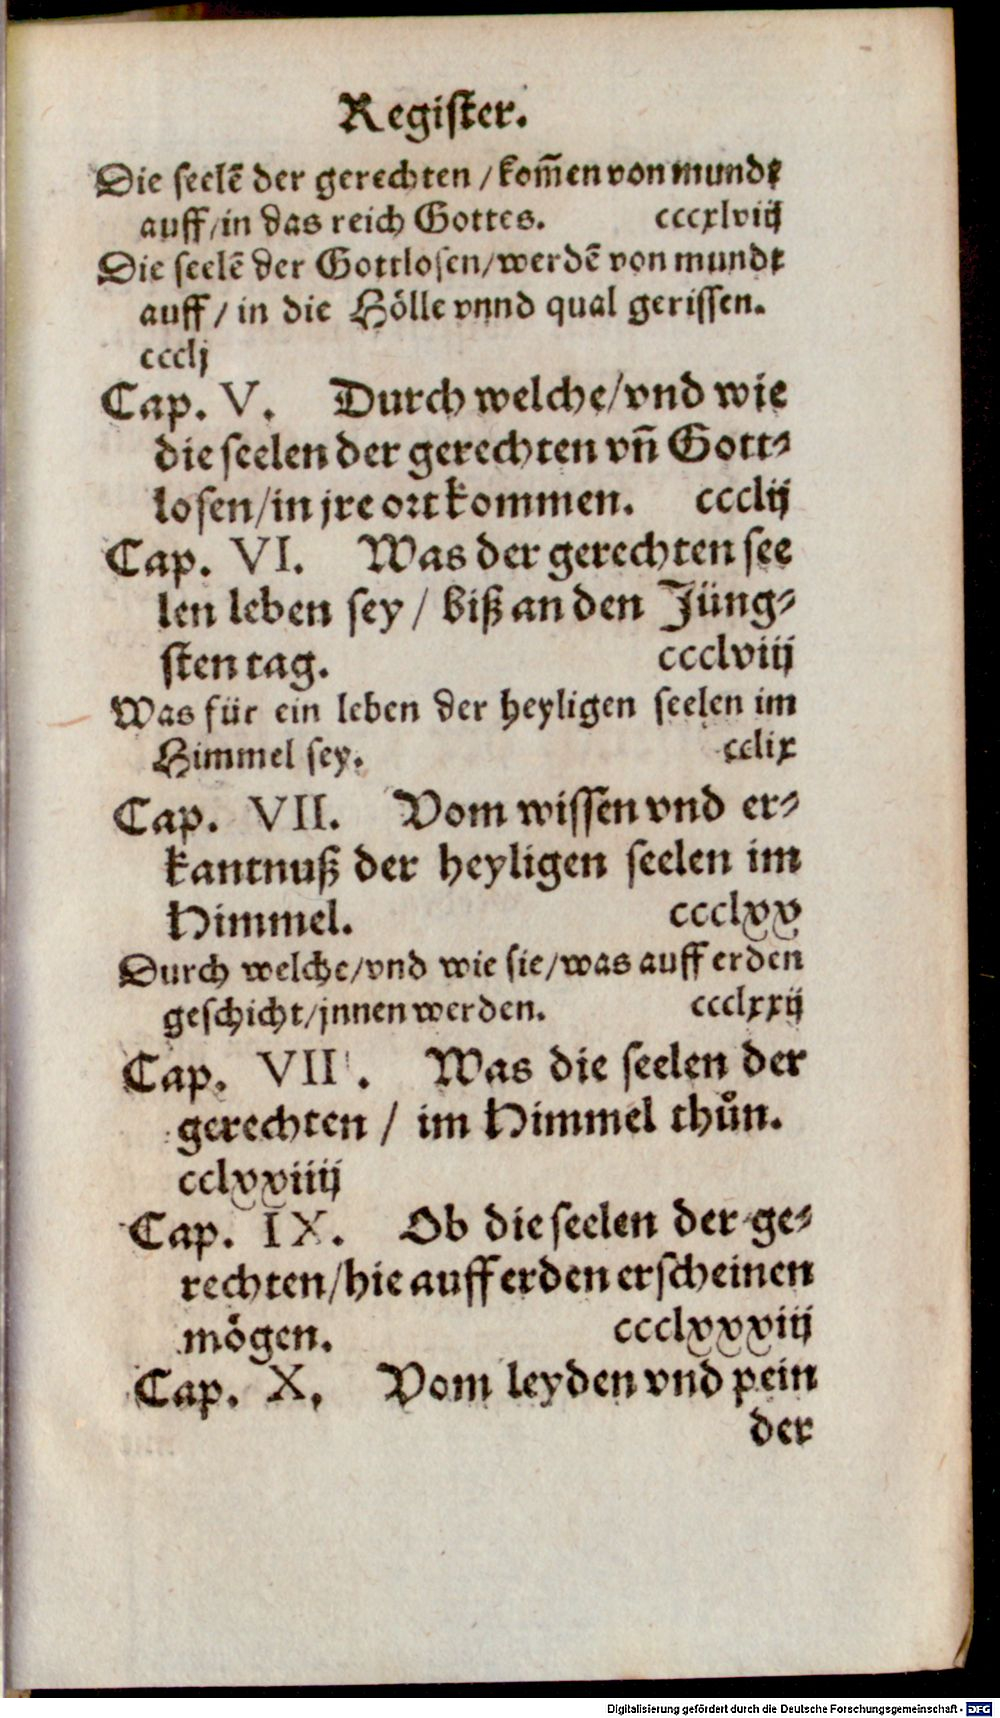 Register.
Die seelẽ der gerechten / kom̃en von mundt
auff / in das reich Gottes. cccxlviij
Die seelẽ der Gottlosen / werdẽ von mundt
auff / in die Hölle vnnd qual gerissen.
ccclj
Cap. V. Durch welche / vnd wie
die seelen der gerechten vñ Gott⸗
losen / in jre ort kommen. ccclij
Cap. VI. Was der gerechten see
len leben sey / biß an den Jüng⸗
sten tag. ccclviij
Was für ein leben der heyligen seelen im
Himmel sey. cclix
Cap. VII. Vom wissen vnd er⸗
kantnuß der heyligen seelen im
Himmel. ccclxx
Durch welche / vnd wie sie / was auff erden
geschicht / jnnen werden. ccclxxij
Cap. VIII. Was die seelen der
gerechten / im Himmel thůn.
cclxxiiij
Cap. IX. Ob die seelen der ge⸗
rechten / hie auff erden erscheinen
mögen. ccclxxxiij
Cap. X. Vom leyden vnd pein
der
Digitalisierung gefördert durch die Deutsche Forschungsgemeinschaft - DFG